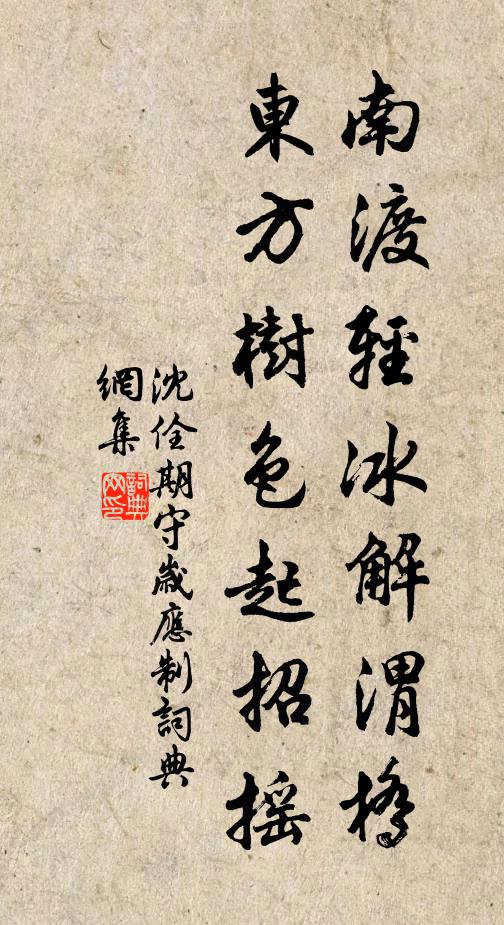 南渡輕冰解渭橋
東方樹色起招搖
沈佺期守歲應制詞典
網集
詞典網印